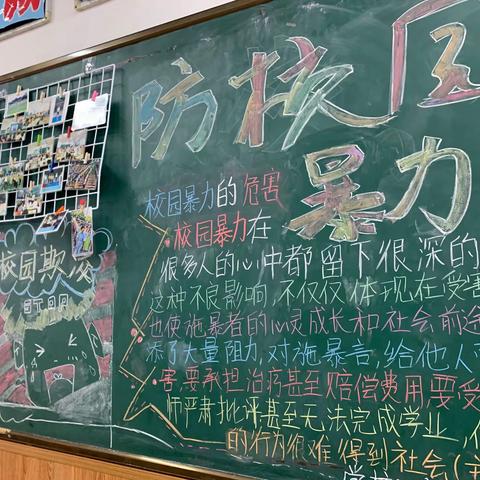 防校园
暴力
校园欺凌
校园暴力的危害
校园暴力在
很多人的心中都留下很深的
这种不良影响,不仅仅体现在受害
也使施暴者的心灵成长和社会前途
添了大量阻力,对施暴言,给他人
害,要承担治疗甚至赔偿费用,要受
师严肃批评,甚至无法完成学业,
的行为很难得到社会(